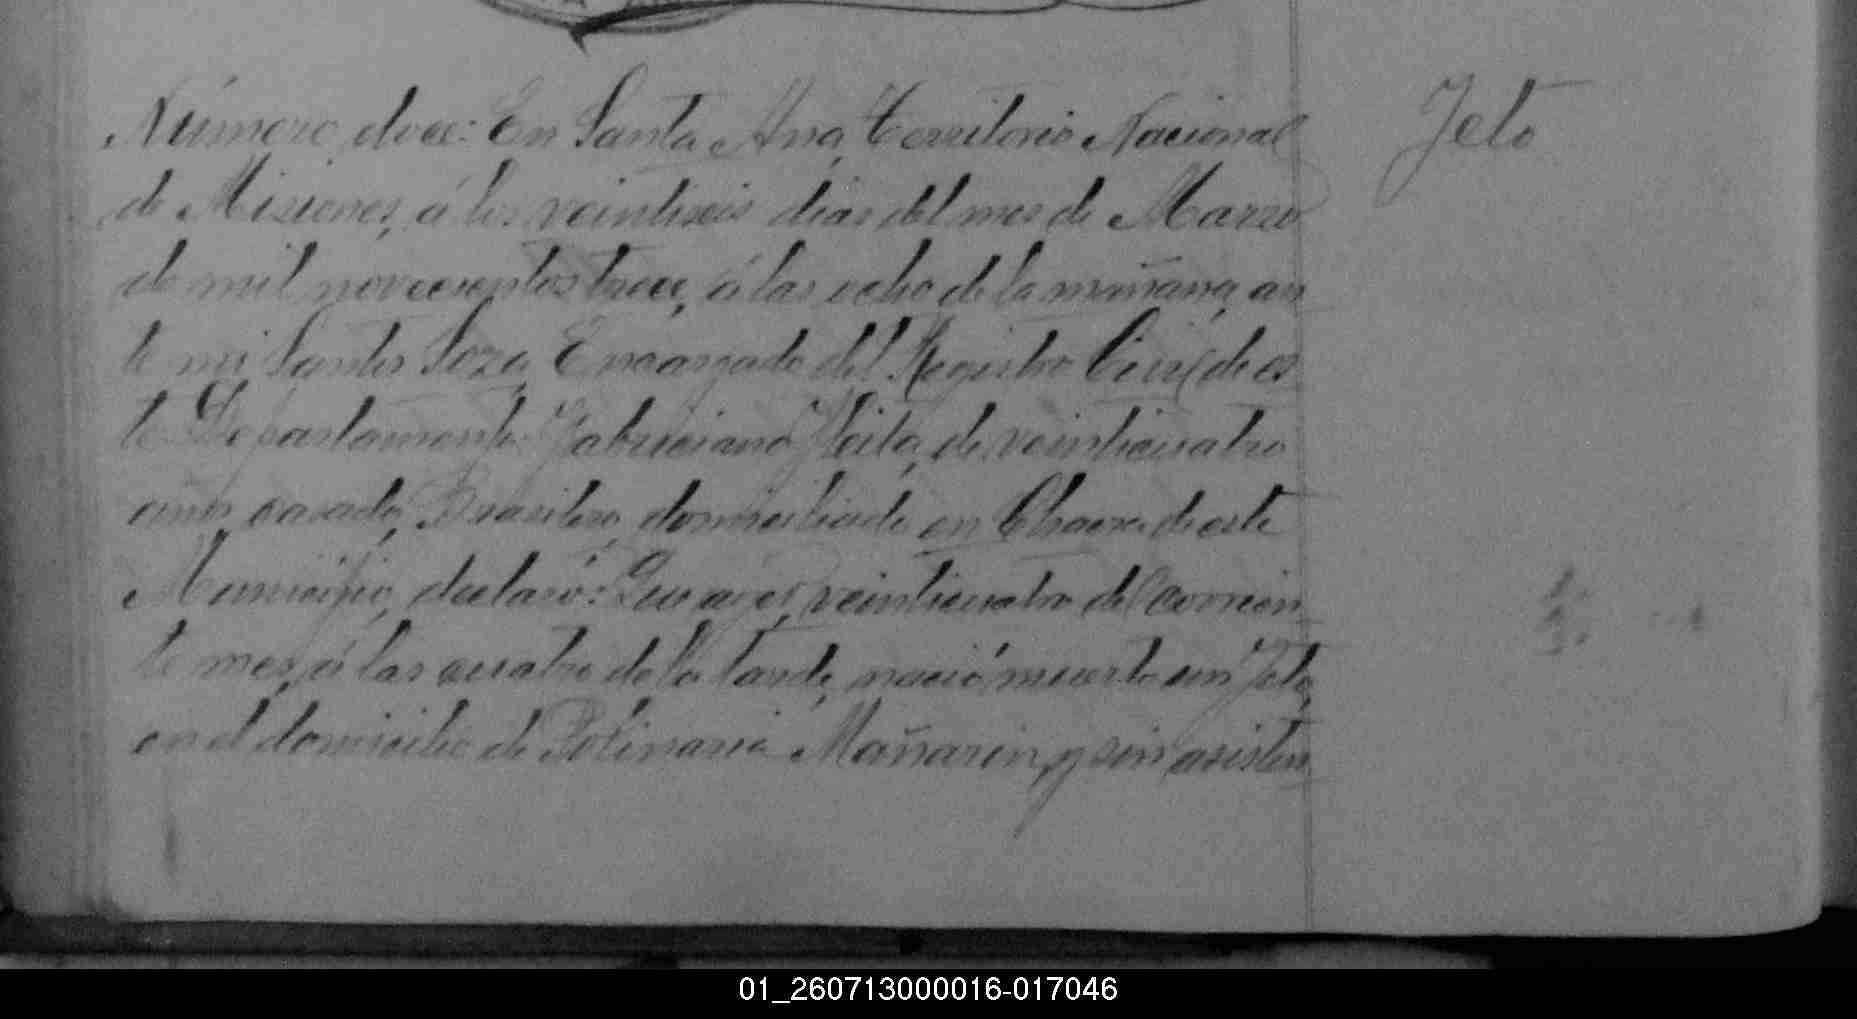 Número doce: En Santa Ana, Territorio Nacional
Feto
de Misiones, á los veintiseis dias del mes de Marzo
de mil novecientos trece, á las ocho de la mañana, an
te mi Santos Soza, Encargado del Registro Civil de es
te Departamento: Fabriciano Fleita, de veinticuatro
años, casado, Brasilero, domiciliado en Chacra de este
Municipio, declaró: Que ayer, veinticuatro del corrien
te mes, á las cuatro de la tarde, nació muerto un Feto,
en el domicilio de Polinaria Mañarin, y sin asisten
01_260713000016-017046